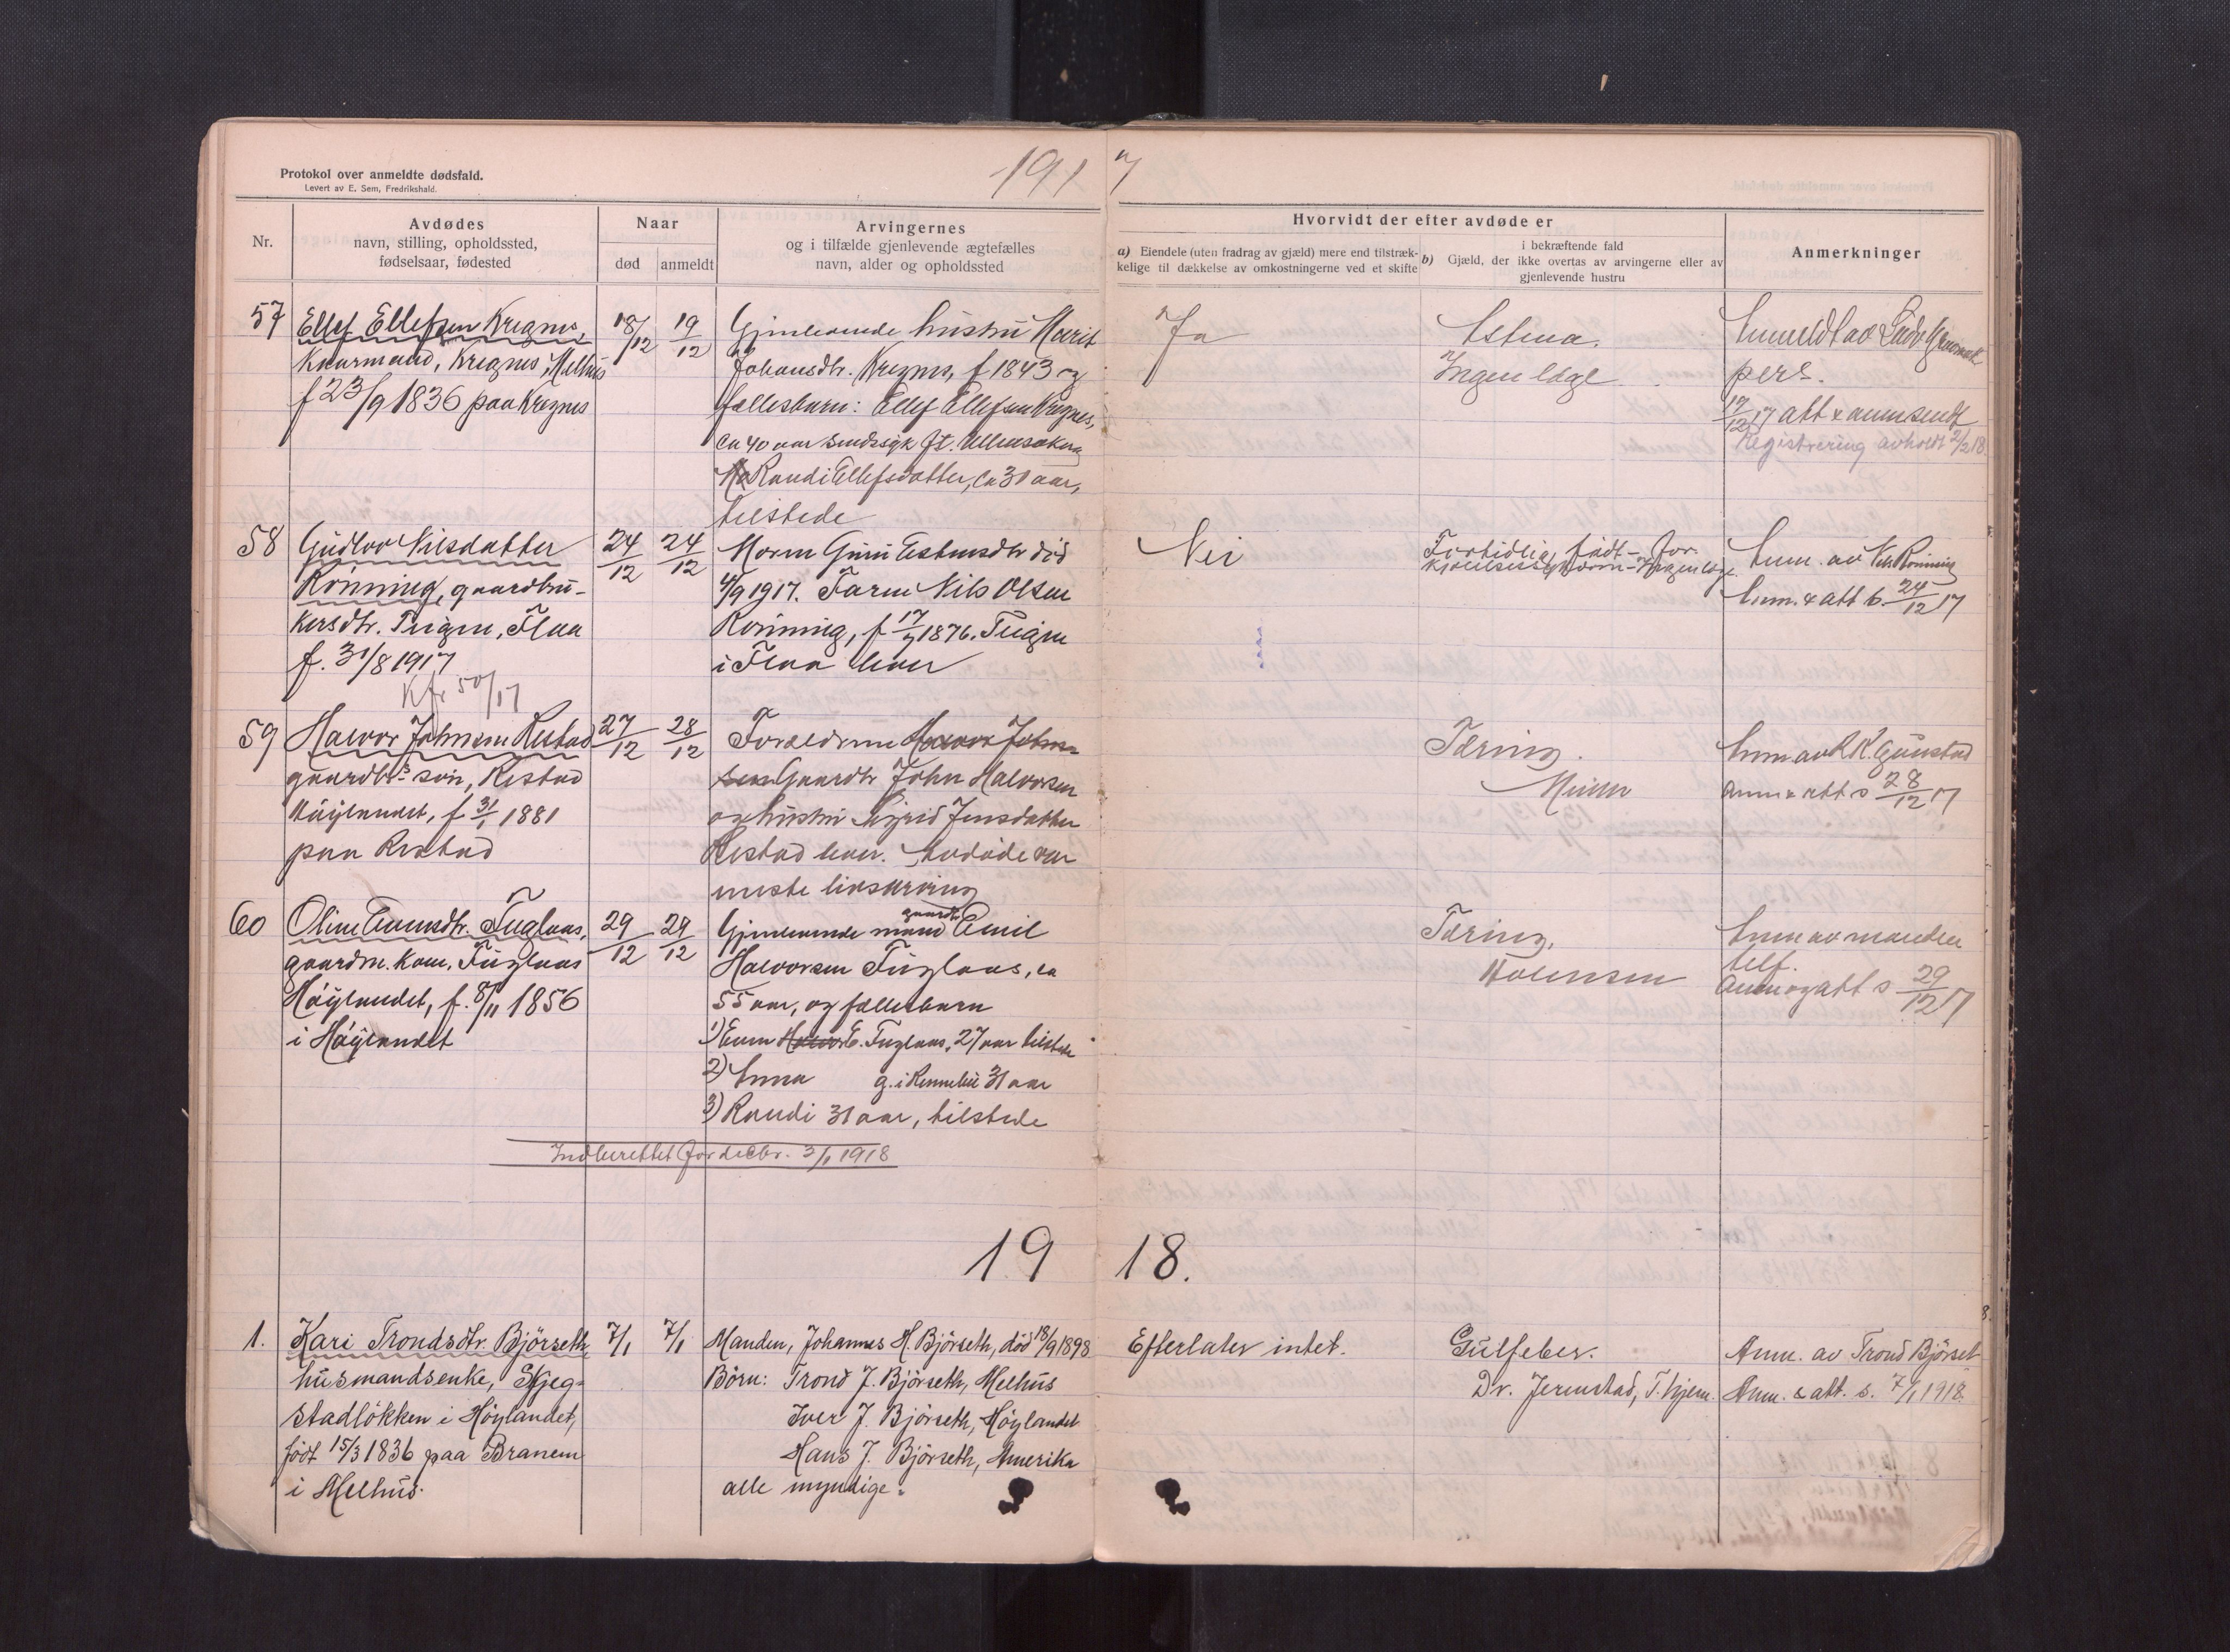 Protokol over anmeldte dødsfald.
Levert av E. Sem, Fredrikshald.
191 7
Nr.
Avdødes
navn, stilling, opholdssted,
fødselsaar, fødested
Naar
død
anmeldt
Arvingernes
og i tilfælde gjenlevende ægtefælles
navn, alder og opholdssted
Hvorvidt der efter avdøde er
a) Eiendele (uten fradrag av gjæld) mere end tilstræk-
kelige til dækkelse av omkostningerne ved et skifte
i bekræftende fald
b) Gjæld, der ikke overtas av arvingerne eller av
gjenlevende hustru
Anmerkninger
57
Ellef Ellefsen Kregnes,
Kaarmand, Kregnes, Melhus
f 23/9 1836 paa Kregnes
18/12
19/12
Gjenlevende hustru Marit
Johansdtr. Kregnes, f 1843 og
fællesbarn: Ellef Ellefsen Kregnes,
ca 40 aar sindssyk
Randi Ellefsdatter, ca 30 aar,
tilstede
Ja
Astma.
Ingen læge
Anmeldt av
pers.
19/12 17 att & anm sendt
Registrering avholdt 2/2 18.
58
Gudlov Nilsdatter
Rönning, gaardbru-
kersdtr. Flaa
f. 31/8 1917
Kfr 50/17
24/12
24/12
Moren Guru Estensdtr död
4/9 1917. Faren Nils Olsen
Rönning, f 17/7 1876.
i Flaa lever
Nei
Fortidlig födt - for-
Ingen læge.
Anm. av Nils Rönning
Anm. & att s. 24/12 17
59
Halvor Johnsen Restad
gaardbrs sön, Restad
Höylandet, f 31/1 1881
paa Restad
27/12
28/12
Forældrene Halvor John-
sen Gaardbr John Halvorsen
og hustru Sigrid Jensdatter
Restad lever. Avdöde var
neste livsarving
Tæring.
Anm av
Anm & att s 28/12 17
60
Oline Evensdtr. Fuglaas,
gaardm. kone, Fuglaas
Höylandet, f. 8/11 1856
i Höylandet
29/12
29/12
gaardbr
Gjenlevende mand Emil
Halvorsen Fuglaas, ca
55 aar, og fællesbarn
1) Even Halvor E. Fuglaas, 27 aar tilstede
2) Anna g. i Rennebu 31 aar
3) Randi 31 aar, tilstede
Tæring.
Anm av manden
telf.
Anm og att s 29/12 17
Indberettet for decbr. 3/1 1918
19 18.
1.
Kari Trondsdtr. Björseth
husmandsenke, Skjeg-
stadlökken i Höylandet,
födt 15/3 1836 paa Branem
i Melhus.
7/1
7/1
Manden, Johannes H. Björseth, död 18/9 1898
Börn: Trond J. Björseth, Melhus
Iver J. Björseth, Höylandet
Hans J. Björseth, Amerika
alle myndige.
Efterlater intet.
Gulfeber.
Dr. Jermstad, T.hjem.
Anm. av Trond Björset
Anm. & att. s. 7/1 1918.